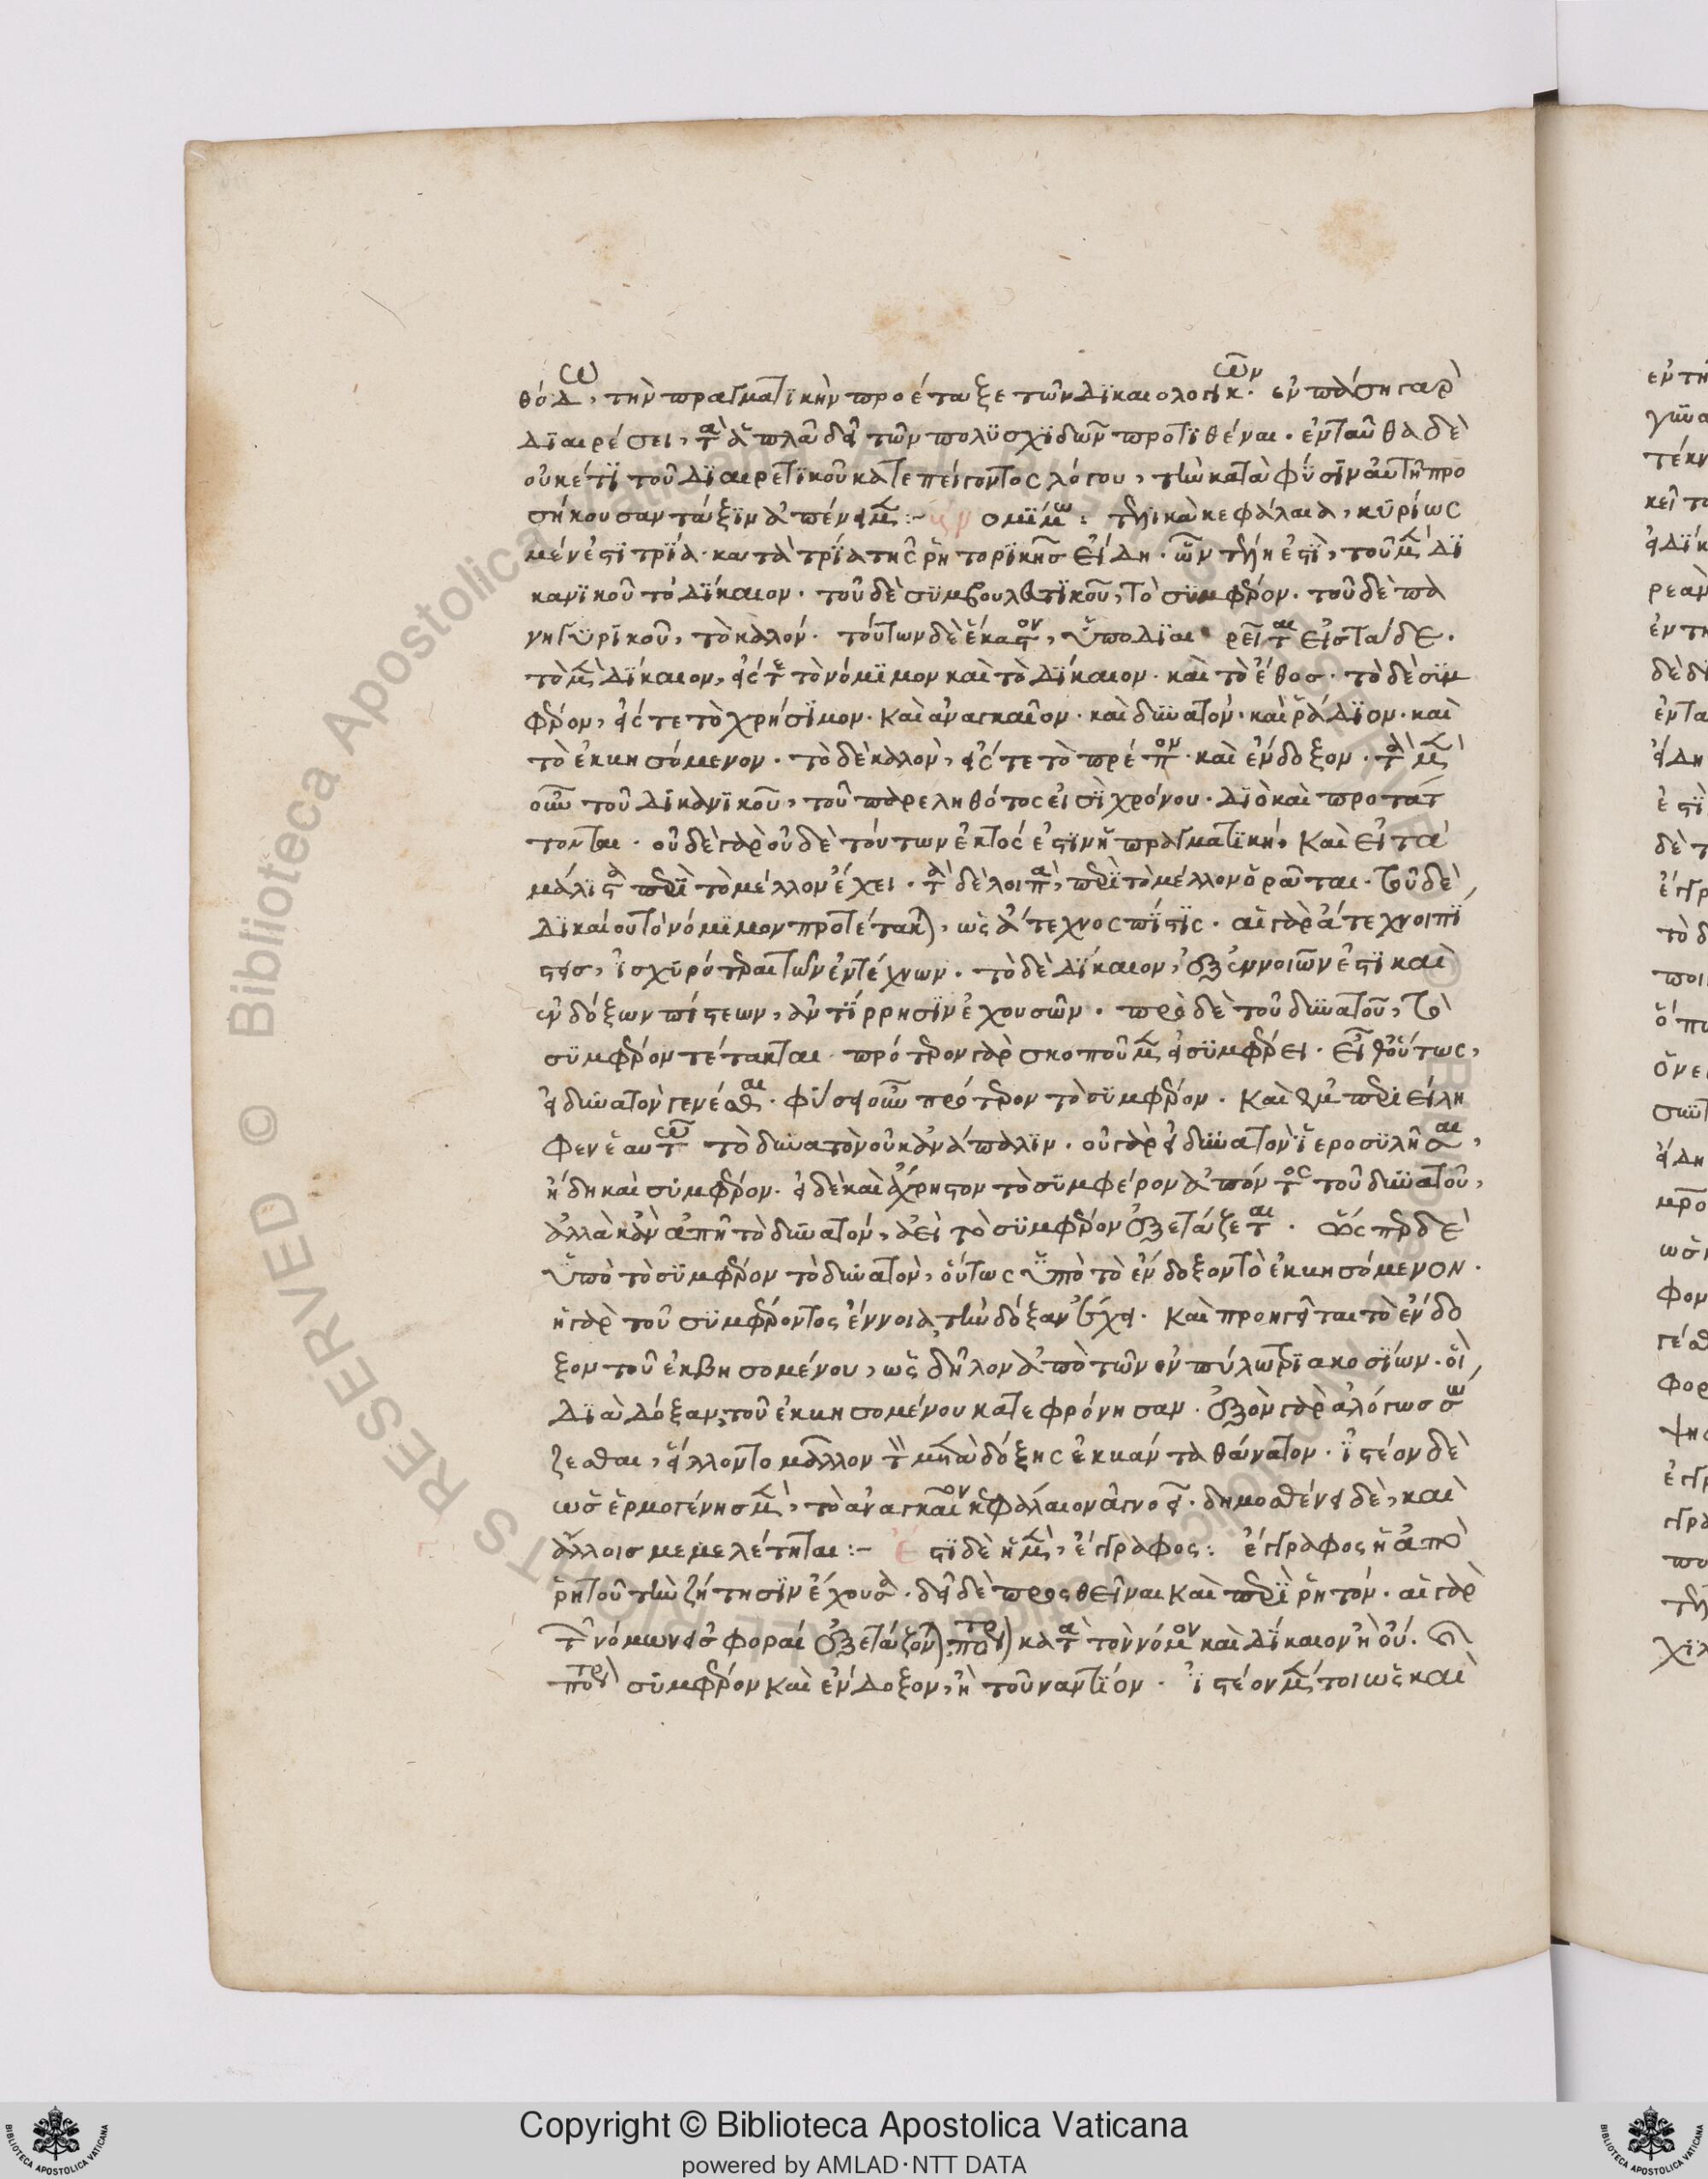 θόδω, τὴν πραγματικὴν προέταξε τῶν δικαιολογικῶν. ἐν πάσῃ γὰρ
διαιρέσει, τὰ ἁπλᾶ δεῖ τῶν πολυσχιδῶν προτιθέναι. ἐνταῦθα δὲ
οὐκέτι τοῦ διαιρετικοῦ κατεπείγοντος λόγου, τὴν κατὰ φύσιν αὐτῆ προ
σήκουσαν τάξιν ἀπένειμεν:-
μέν ἐστι τρία. κατὰ τρία τῆς ῥητορικῆς εἴδη. ὧν τέλη ἐστὶ, τοῦ μὲν δι
κανικοῦ τὸ δίκαιον. τοῦ δὲ συμβουλευτικοῦ, τὸ συμφέρον. τοῦ δὲ πα
νηγυρικοῦ, τὸ καλόν. τούτων δὲ ἕκαστον, ὑποδιαιρεῖται εἰς τάδε.
τὸ μὲν δίκαιον, εἴς τε τὸ νόμιμον καὶ τὸ δίκαιον. καὶ τὸ ἔθος. τὸ δὲ συμ
φέρον, εἴς τε τὸ χρήσιμον. καὶ ἀναγκαῖον. καὶ δυνατόν. καὶ ῥάδιον. καὶ
τὸ ἐκβησόμενον. τὸ δὲ καλὸν, εἴς τε τὸ πρέπον. καὶ ἔνδοξον. τὰ μὲν
οὖν τοῦ δικανικοῦ, τοῦ παρεληλθότος εἰσὶ χρόνου. διὸ καὶ προτάτ
τονται. οὐδὲ γὰρ οὐδὲ τούτων ἐκτός ἐστιν ἡ πραγματική, καὶ εἰ τὰ
μάλιστα περὶ τὸ μέλλον ἔχει. τὰ δὲ λοιπὰ, περὶ τὸ μέλλον ὁρᾶται. τοῦ δὲ
δικαίου τὸ νόμιμον προτέτακται, ὡς ἄτεχνος πίστις. αἱ γὰρ ἄτεχνοι πί
στεις, ἰσχυρότεραι τῶν ἐντέχνων. τὸ δὲ δίκαιον, ἐξ ἐννοιῶν ἐστι καὶ
ἐνδόξων πίστεων, ἀντίρρησιν ἐχουσῶν. πρὸ δὲ τοῦ δυνατοῦ, τὸ
συμφέρον τέτακται. πρότερον γὰρ σκοποῦμεν εἰ συμφέρει. εἶθ' οὕτως,
εἰ δυνατὸν γενέσθαι. φύσει οὖν πρότερον τὸ συμφέρον. καὶ τὸ μὲν περιείλη
φεν ἑαυτῶ τὸ δυνατὸν οὐκ ἀνάπαλιν. οὐ γὰρ εἰ δυνατὸν ἱεροσυλῆσαι,
ἤδη καὶ συμφέρον. εἰ δὲ καὶ ἄχρηστον τὸ συμφέρον ἀπόντος τοῦ δυνατοῦ,
ἀλλὰ κἂν ἀπῆ τὸ δυνατόν, ἀεὶ τὸ συμφέρον ἐξετάζεται. ὥσπερ δὲ
ὑπὸ τὸ συμφέρον τὸ δυνατὸν, οὕτως ὑπὸ τὸ ἔνδοξον τὸ ἐκβησόμενον.
ἡ γὰρ τοῦ συμφέροντος ἔννοια, τὴν δόξαν ἔχει. καὶ προηγεῖται τὸ ἔνδο
ξον τοῦ ἐκβησομένου, ὡς δῆλον ἀπὸ τῶν ἐν πύλω τριακοσίων. οἳ
διὰ δόξαν, τοῦ ἐκβησομένου κατεφρόνησαν. ἐξὸν γὰρ ἀλόγως σώ
ζεσθαι, εἵλλοντο μᾶλλον τὸν μετὰ δόξης ἐκβάντα θάνατον. ἰστέον δὲ
ὡς ἑρμογένης μὲν, τὸ ἀναγκαῖον κεφάλαιον ἀγνοεῖ. δημοσθένει δὲ, καὶ
ἄλλοις μεμελέτηται:- ἔστι δὲ ἡ μὲν, ἔγγραφος: ἔγγραφος ἡ ἀπὸ
ῥητοῦ τὴν ζήτησιν ἔχουσα. δεῖ δὲ προσθεῖναι καὶ περὶ ῥητόν. αἱ γὰρ
τῶν νόμων εἰσφοραί ἐξετάζονται, πότερον κατὰ τὸν νόμον καὶ δίκαιον ἢ οὔ.
πότερον συμφέρον καὶ ἔνδοξον, ἢ τοὐναντίον. ἰστέον μέντοι ὡς καὶ
Copyright © Biblioteca Apostolica Vaticana
powered by AMLAD·NTT DATA